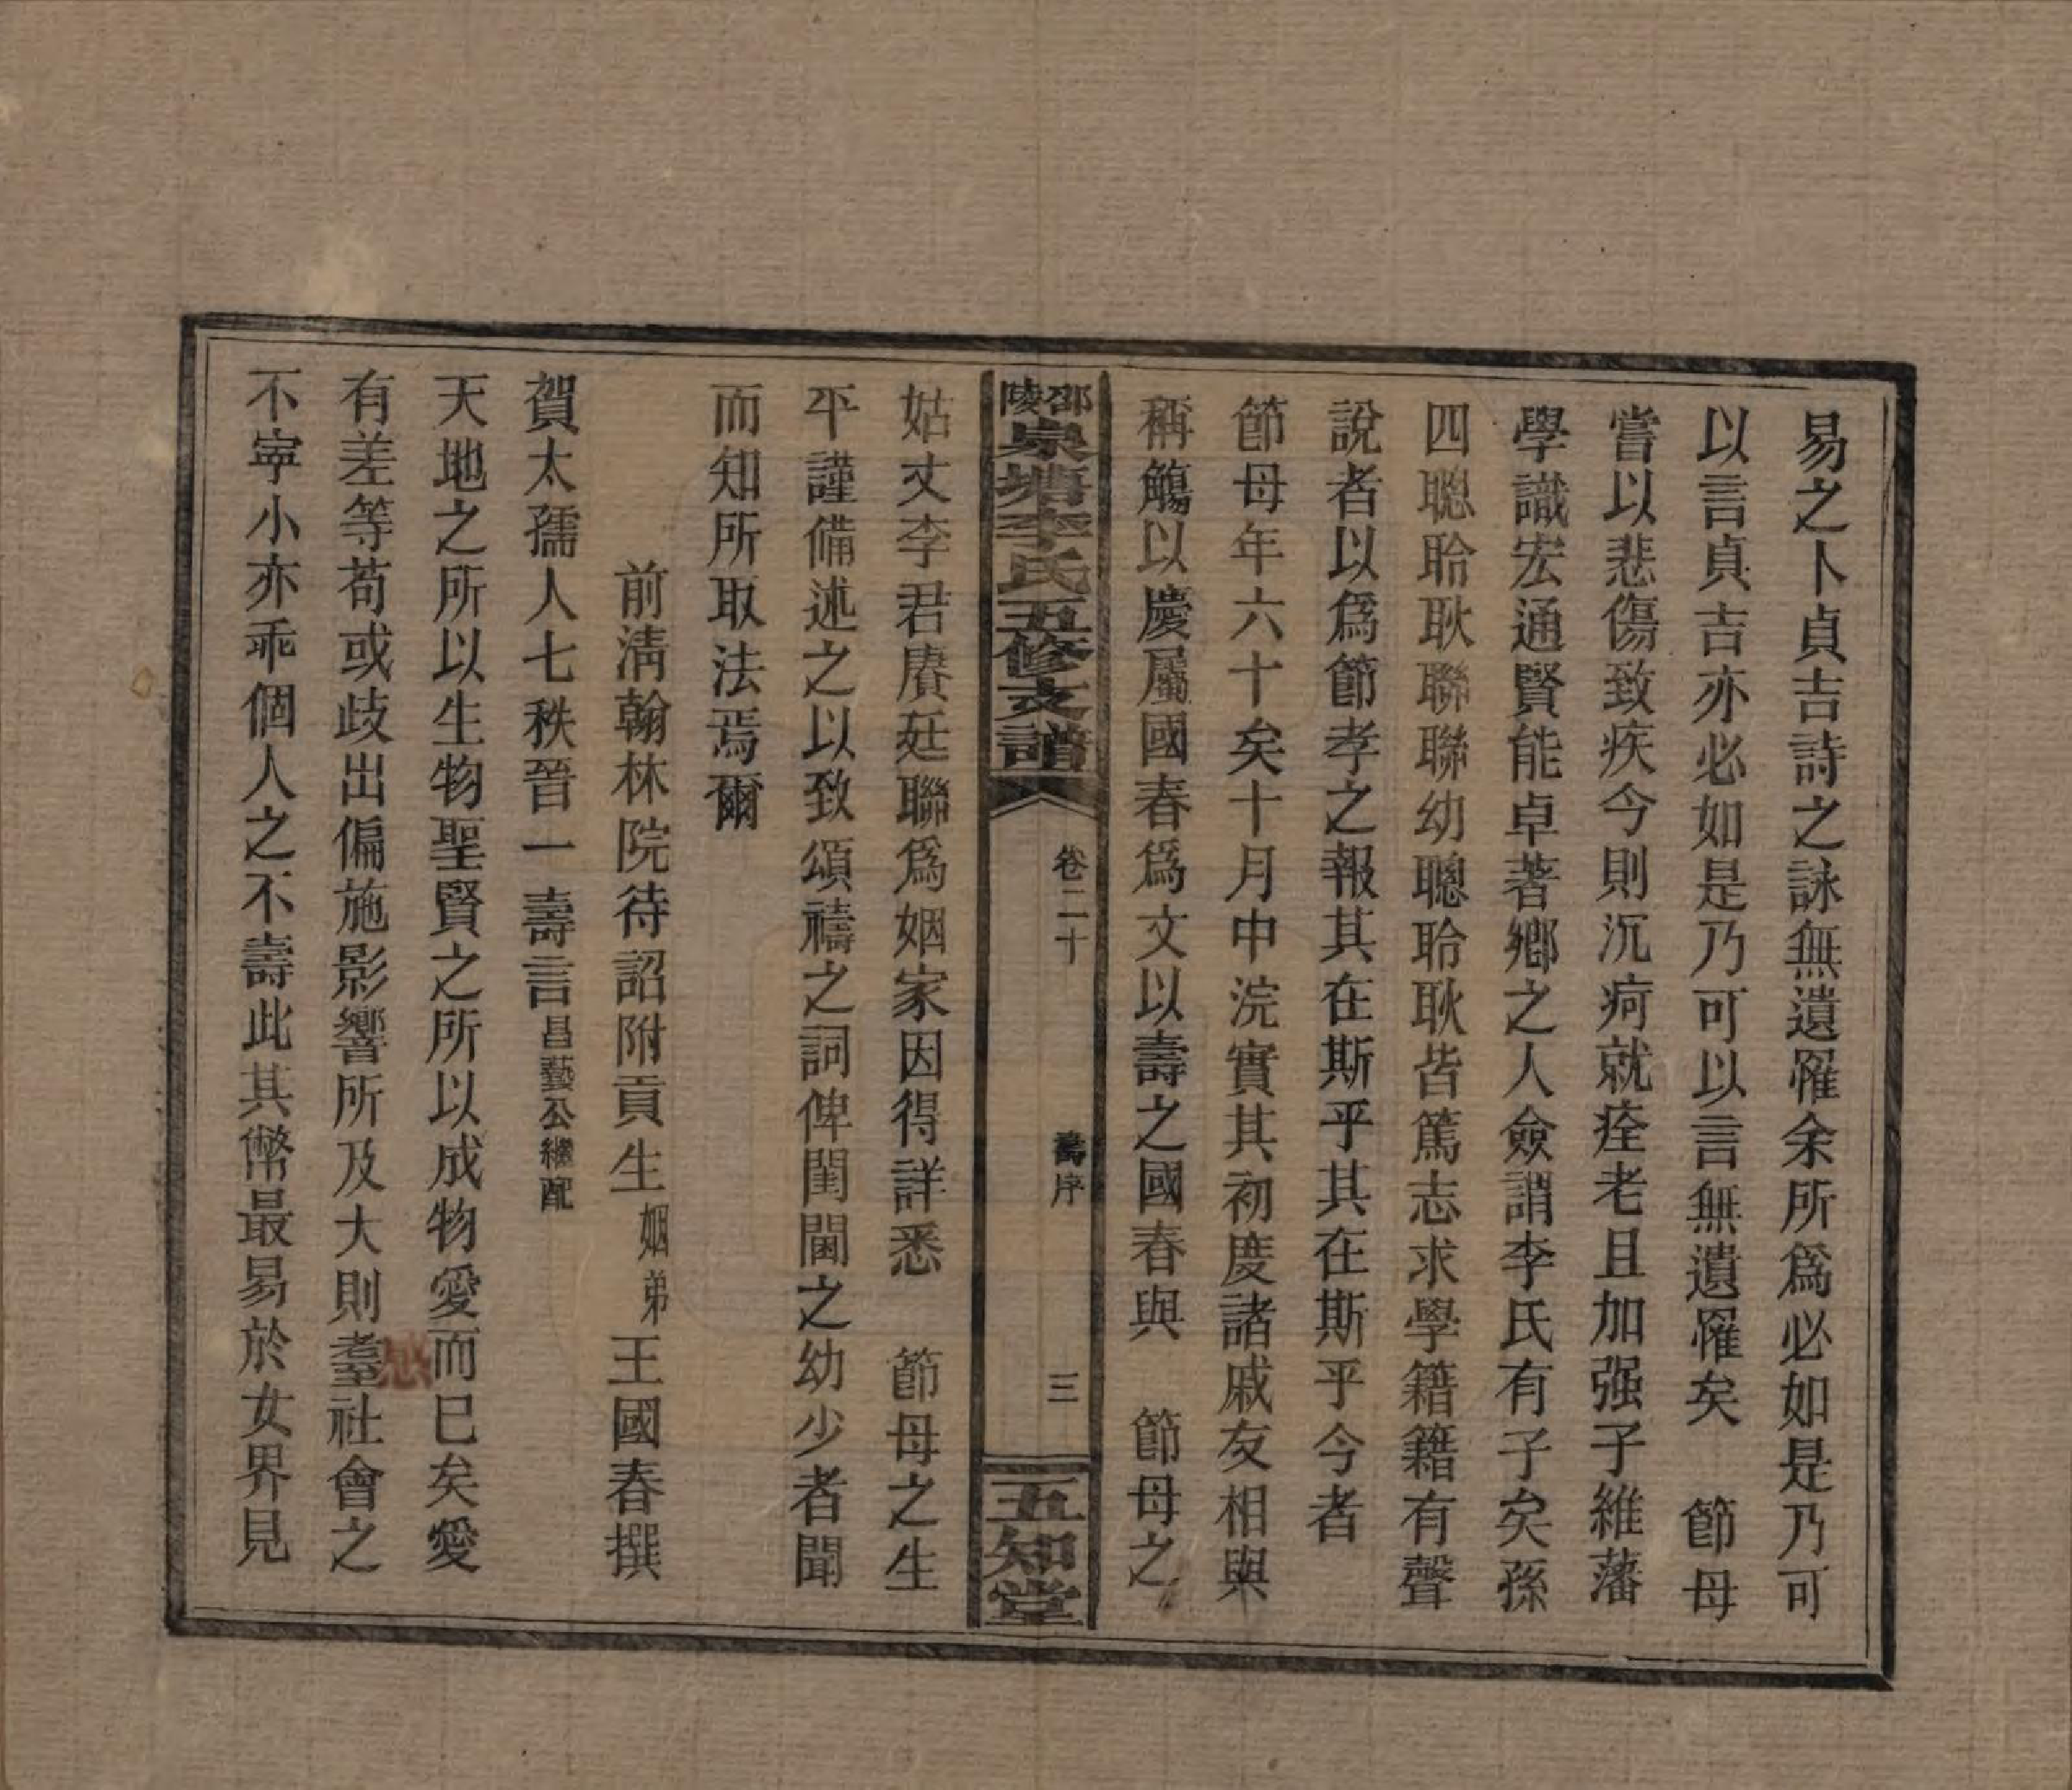 易之卜貞吉詩之詠無遺罹余所爲必如是乃可
以言貞吉亦必如是乃可以言無遺罹矣　節母
嘗以悲傷致疾今則沉疴就痊老且加强子維藩
學識宏通賢能卓著鄉之人僉謂李氏有子矣孫
四聰聆耿聯聯幼聰聆耿皆篤志求學籍籍有聲
說者以爲節孝之報其在斯乎其在斯乎今者
節母年六十矣十月中浣實其初度諸戚友相與
稱觴以慶屬國春爲文以壽之國春與　節母之
邵陵泉塘李氏五修支譜
卷二十
壽序
三
五知堂
姑丈李君賡廷聯爲姻家因得詳悉　節母之生
平謹備述之以致頌禱之詞俾閨閫之幼少者聞
而知所取法焉爾
前淸翰林院待詔附貢生姻弟王國春撰
賀太孺人七秩晉一壽言昌藝公繼配
天地之所以生物聖賢之所以成物愛而已矣愛
有差等苟或歧出偏施影響所及大則耋社會之
慼
不寧小亦乖個人之不壽此其幣最易於女界見